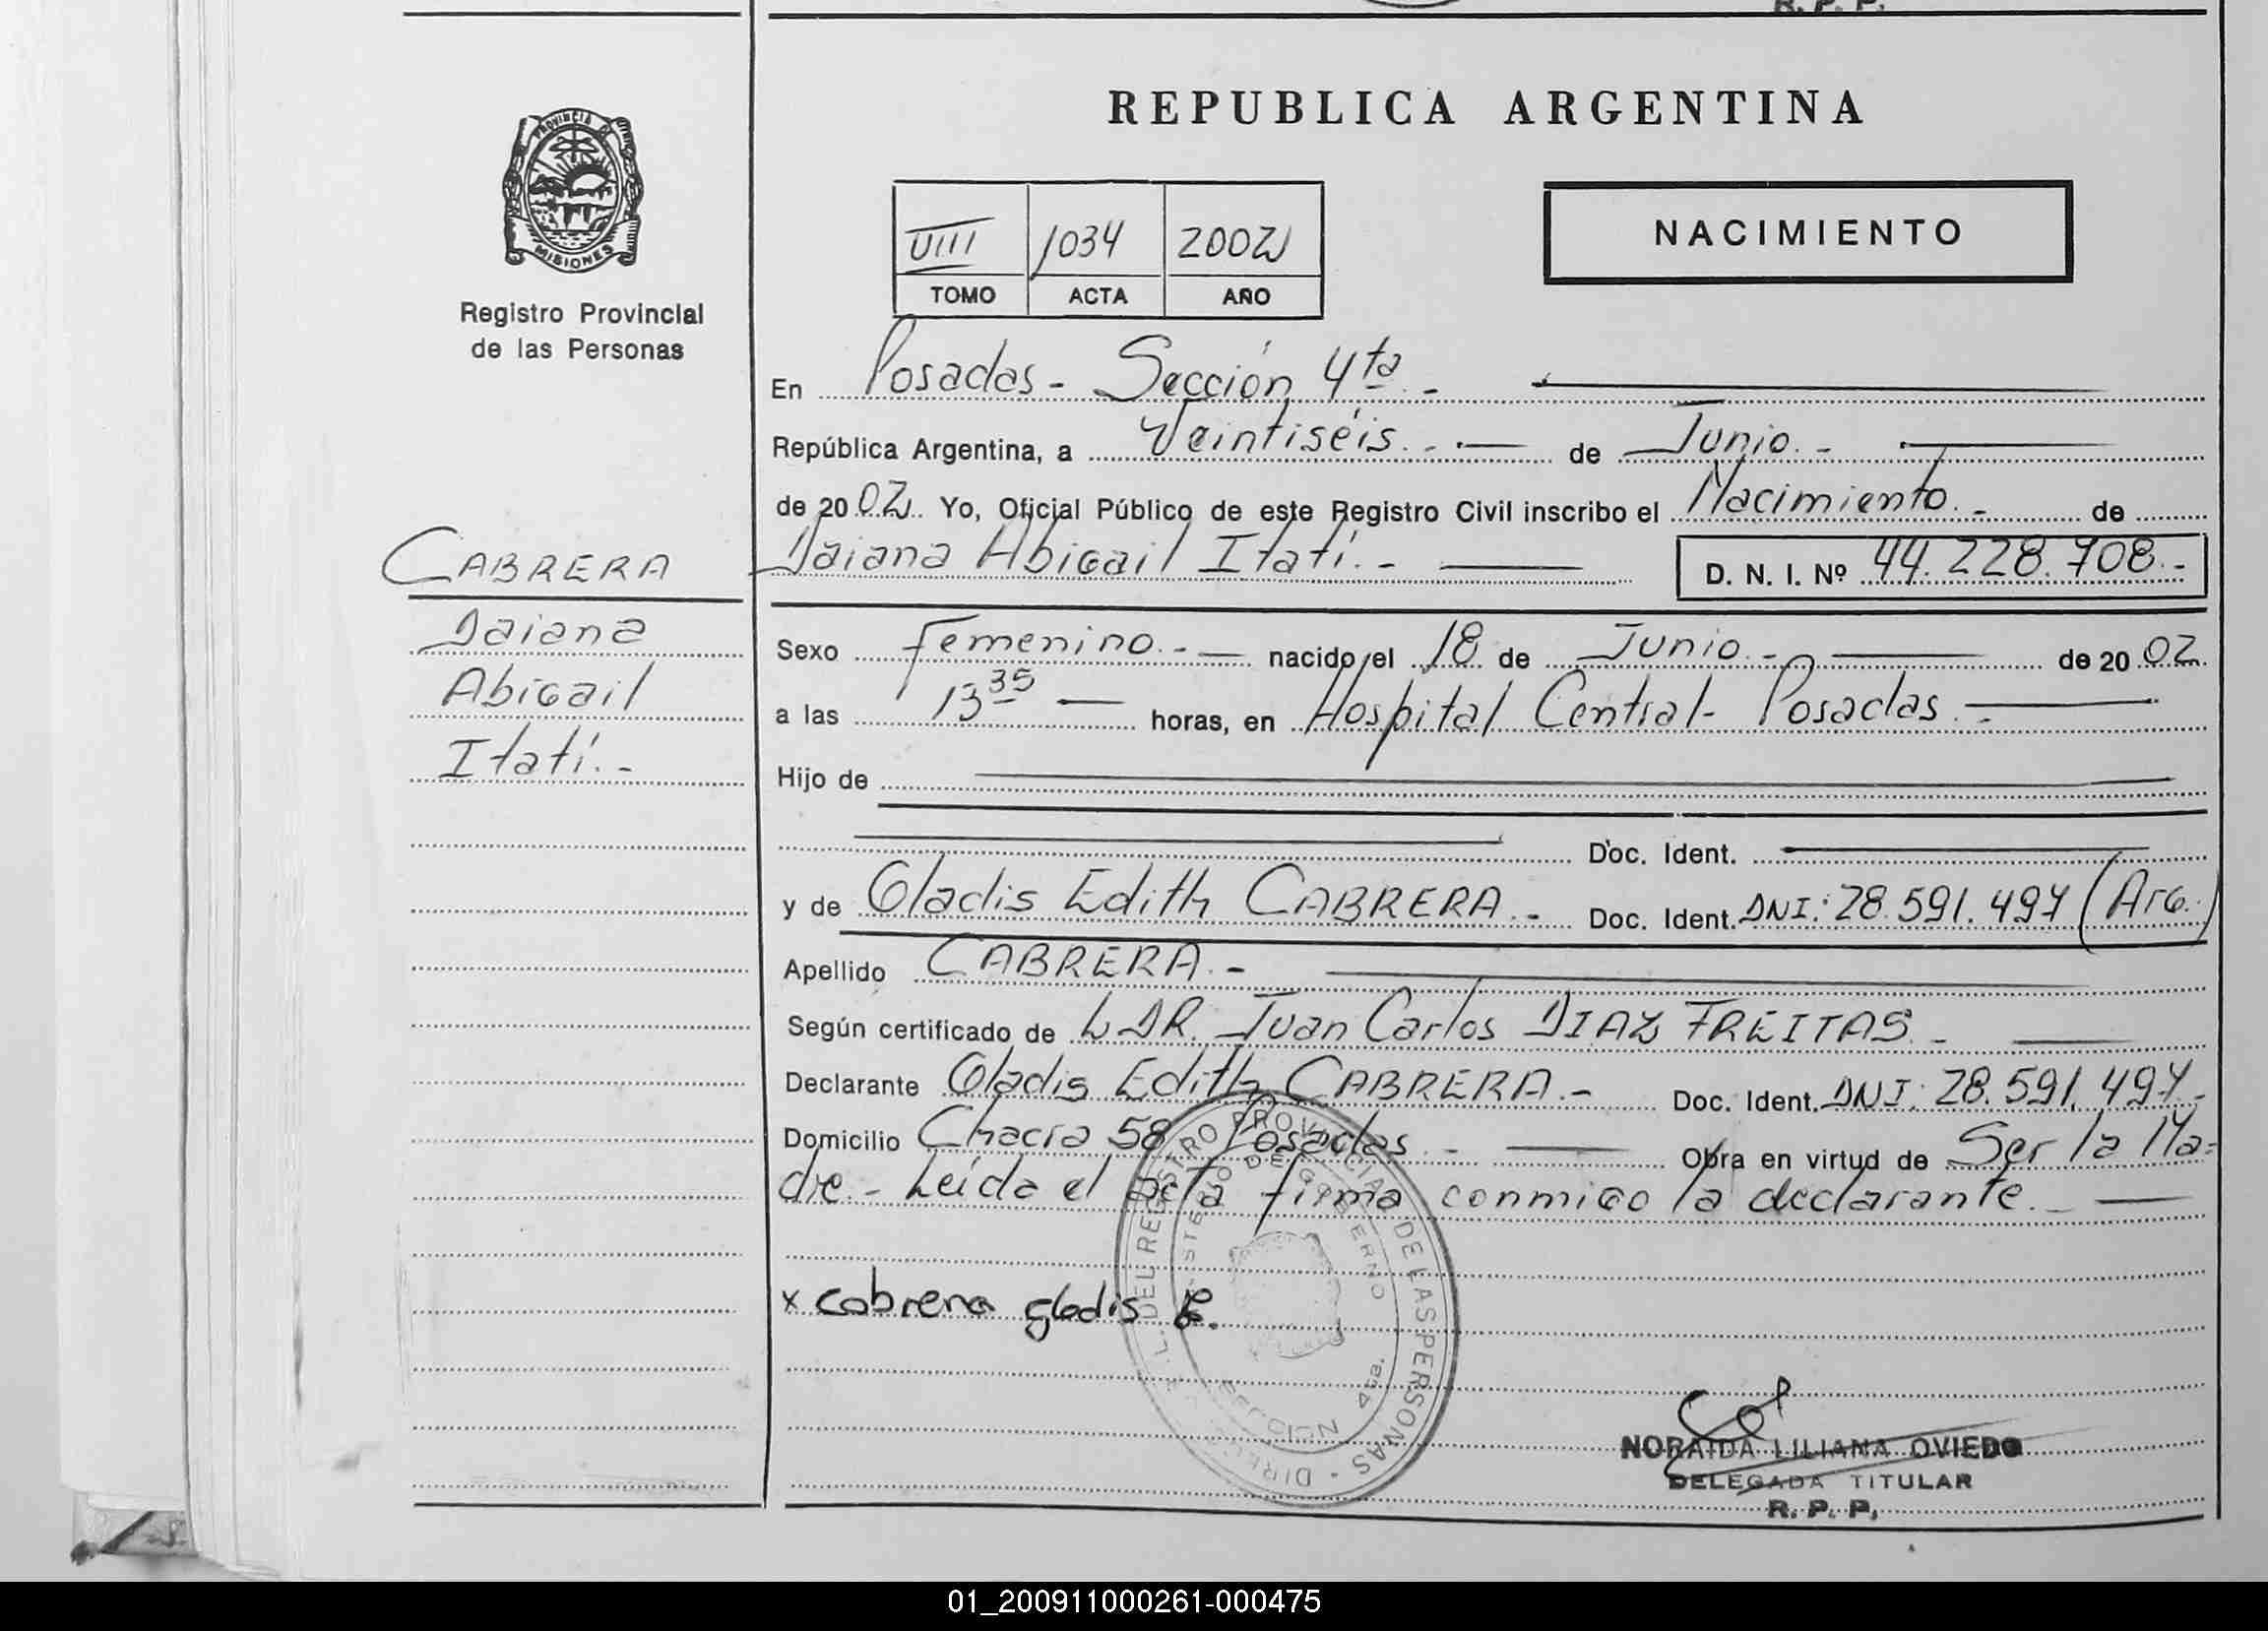 R. P. P.
PROVINCIA DE
MISIONES
Registro Provincial
de las Personas
CABRERA
Daiana
Abigail
Itatí.-
REPUBLICA ARGENTINA
VIII 1034 2002
TOMO ACTA AÑO
NACIMIENTO
En Posadas - Sección 4ta.-
República Argentina, a Veintiséis.- de Junio.-
de 2002. Yo, Oficial Público de este Registro Civil inscribo el Nacimiento.- de
Daiana Abigail Itatí.- D. N. I. Nº 44.228.708.-
Sexo Femenino.- nacido el 18 de Junio.- de 2002
a las 13 35 horas, en Hospital Central - Posadas.-
Hijo de
Doc. Ident.
y de Gladis Edith CABRERA.- Doc. Ident. DNI: 28.591.497 (Arg.)
Apellido CABRERA.-
Según certificado de DR. Juan Carlos DIAZ FREITAS.-
Declarante Gladis Edith CABRERA.- Doc. Ident. DNI: 28.591.497-
Domicilio Chacra 58 Posadas.- Obra en virtud de Ser la Ma-
dre.- Leída el acta firma conmigo la declarante.-
x cabrera gladis E.
DEL REGISTRO PROVINCIAL DE LAS PERSONAS
DE GOBIERNO
SECCION 4ta.
NORAIDA LILIANA OVIEDO
DELEGADA TITULAR
R. P. P.
01_200911000261-000475